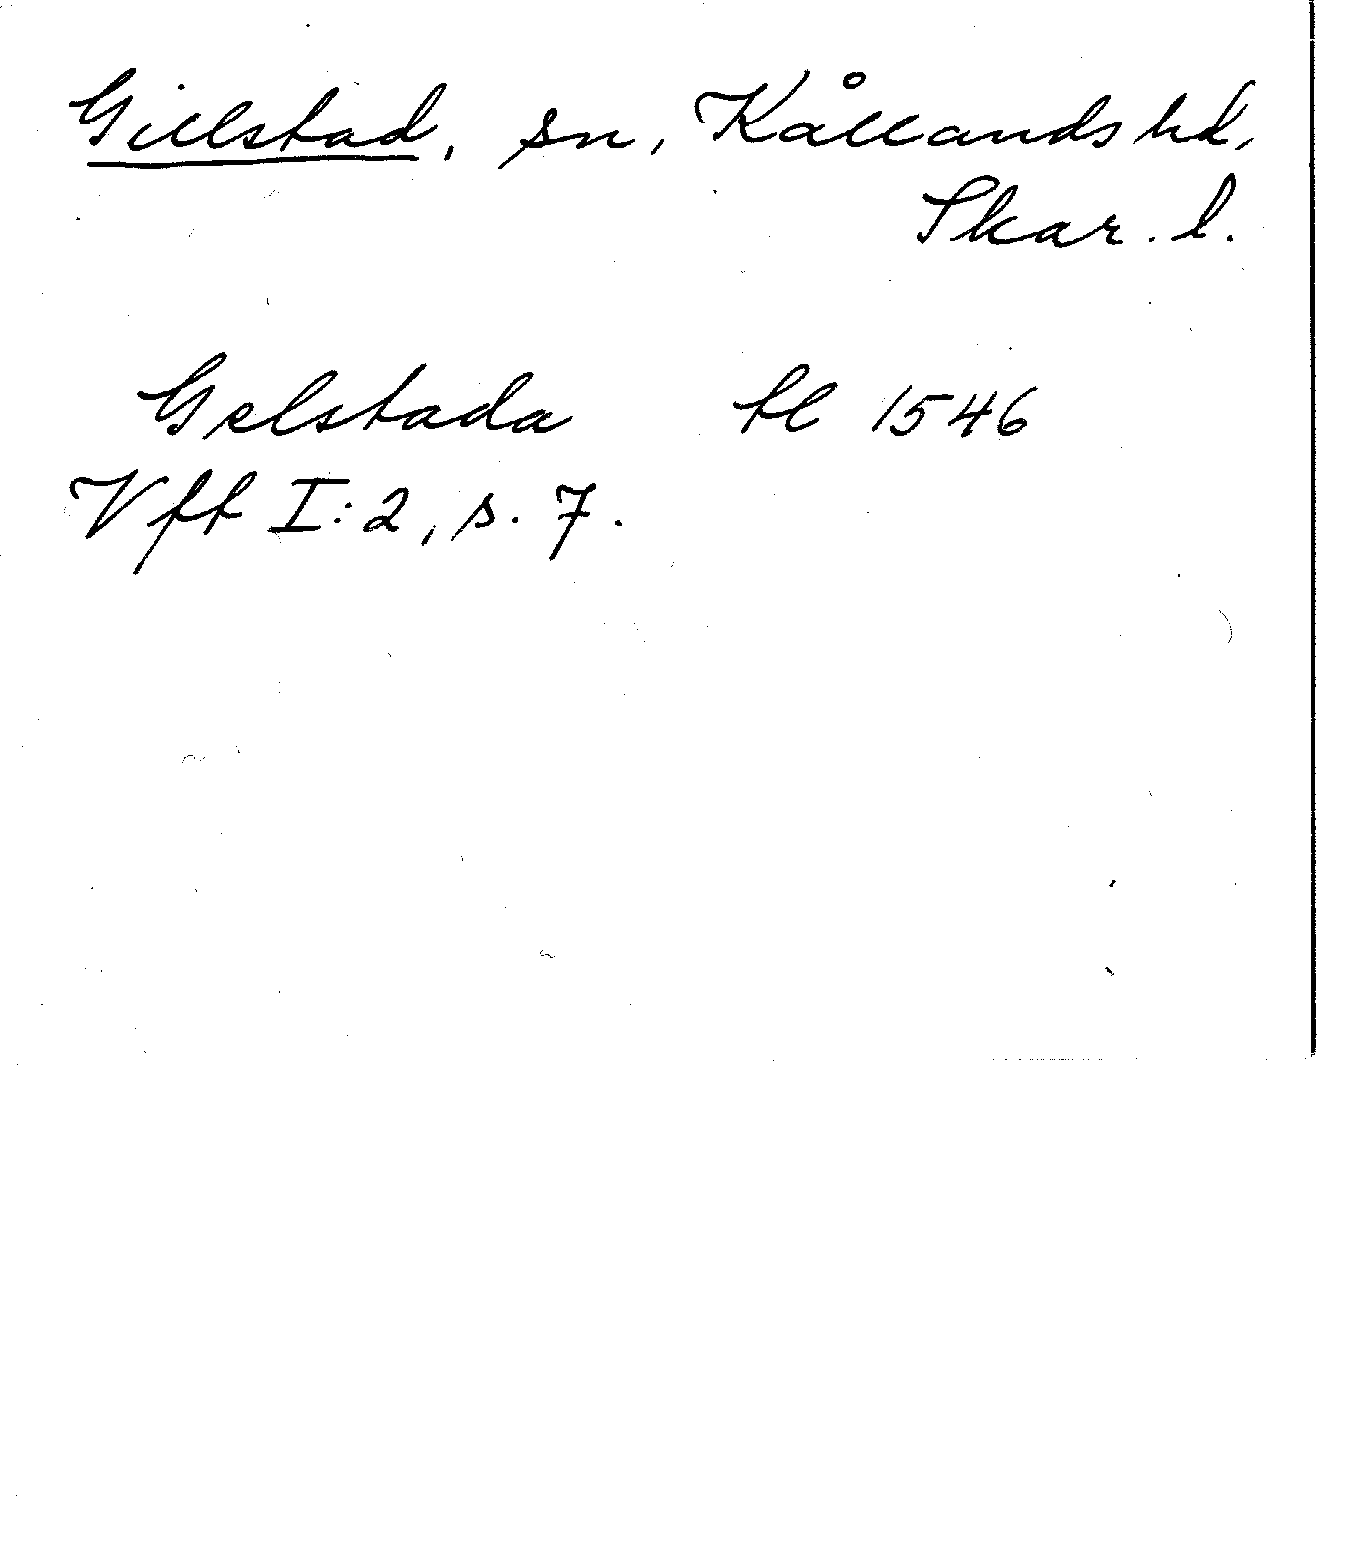 Gillstad, sn, Kållands hd,
Skar. l.
Gelstada tl 1546
Vft I:2, s. 7.